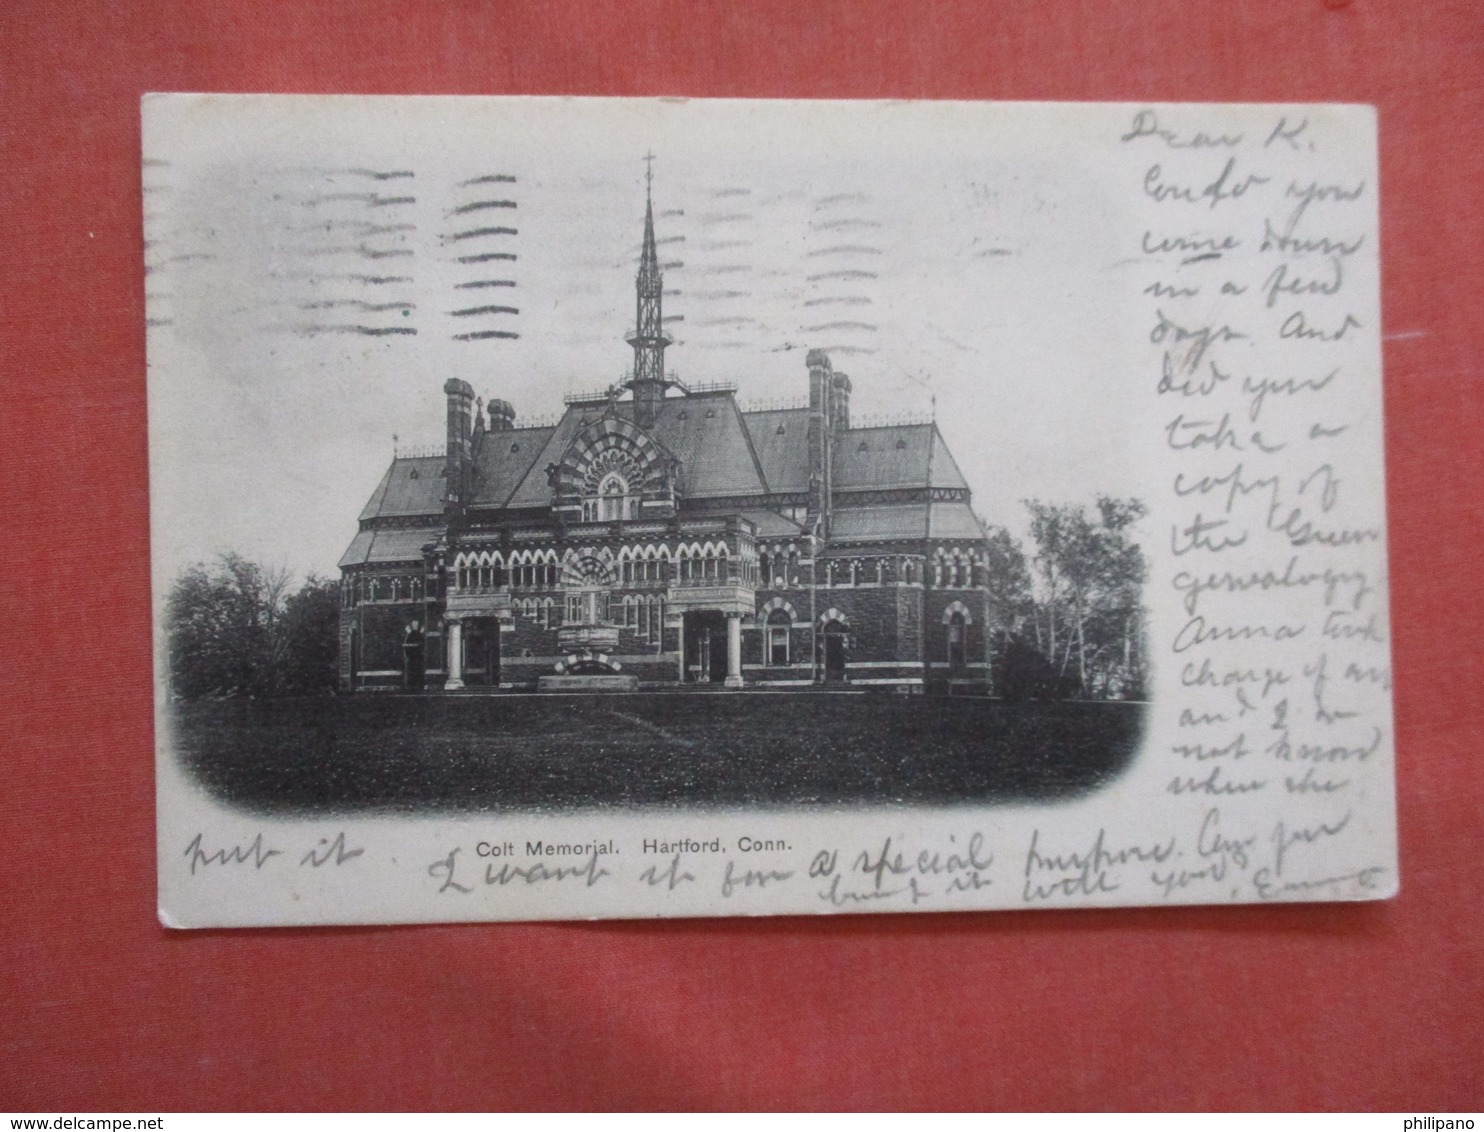 Dear K.
Could you
come down
in a few
days. And
did you
take a
copy of
the Green
genealogy
Anna took
charge of ours
and I do
not know
where she
put it. I want it for a special purpose. Can you
bring it with you.
Colt Memorial. Hartford, Conn.
delcampe.net
philipano